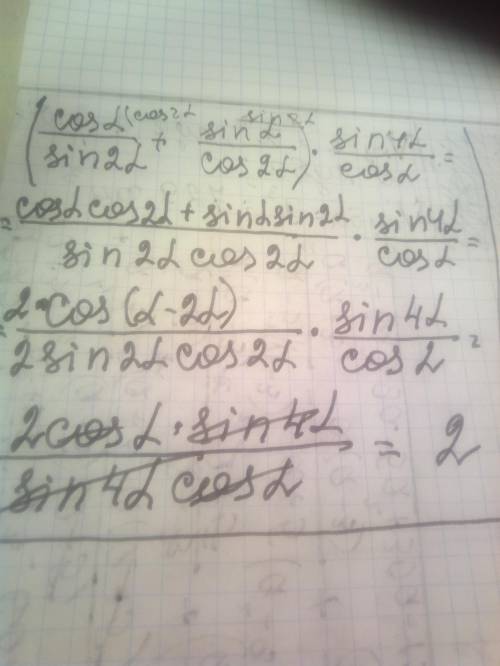 (cosα(cos2α / sin2α + sinα sin2α / cos2α) · sin4α / cosα =
= cosα cos2α + sinα sin2α / sin2α cos2α · sin4α / cosα =
= 2·cos(α-2α) / 2sin2α cos2α · sin4α / cosα =
2cosα · sin4α / sin4α cosα = 2